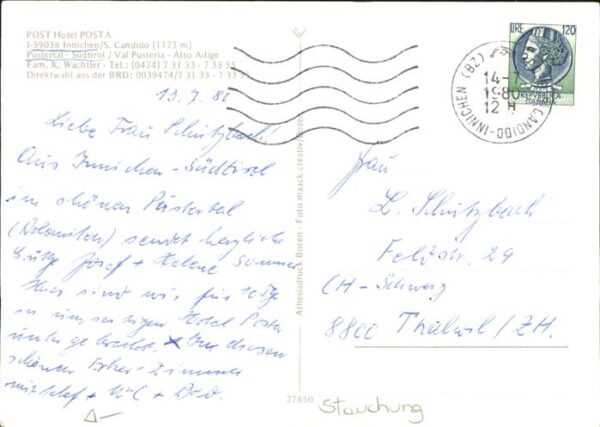 POST Hotel POSTA
I-39038 Innichen/S. Candido (1173 m)
Pustertal - Südtirol / Val Pusteria - Alto Adige
Fam. K. Wachtler - Tel.: (0474) 7 31 33 - 7 33 55
Direktwahl aus der BRD: 0039474/7 31 33 - 7 33 55
13.7.80
Liebe Frau Schützbach!
Aus Innichen - Südtirol
im schönen Pustertal
(Dolomiten) sendet herzliche
Grüße Josef + Helene Sommer
Hier sind wir für 10 Tge
in umseitigen Hotel Posta
untergebracht. In diesem
schönen Zimmer
mit + WC + Bad.
Athesiadruck Bozen - Foto maack creativ, Bozen
27850
LIRE 120
REPUBBLICA ITALIANA
CANDIDO-INNICHEN (BZ)
14-7
1980
12 H
Frau
L. Schützbach
Feldstr. 29
CH-Schweiz
8800 Thalwil/ZH.
Stauchung